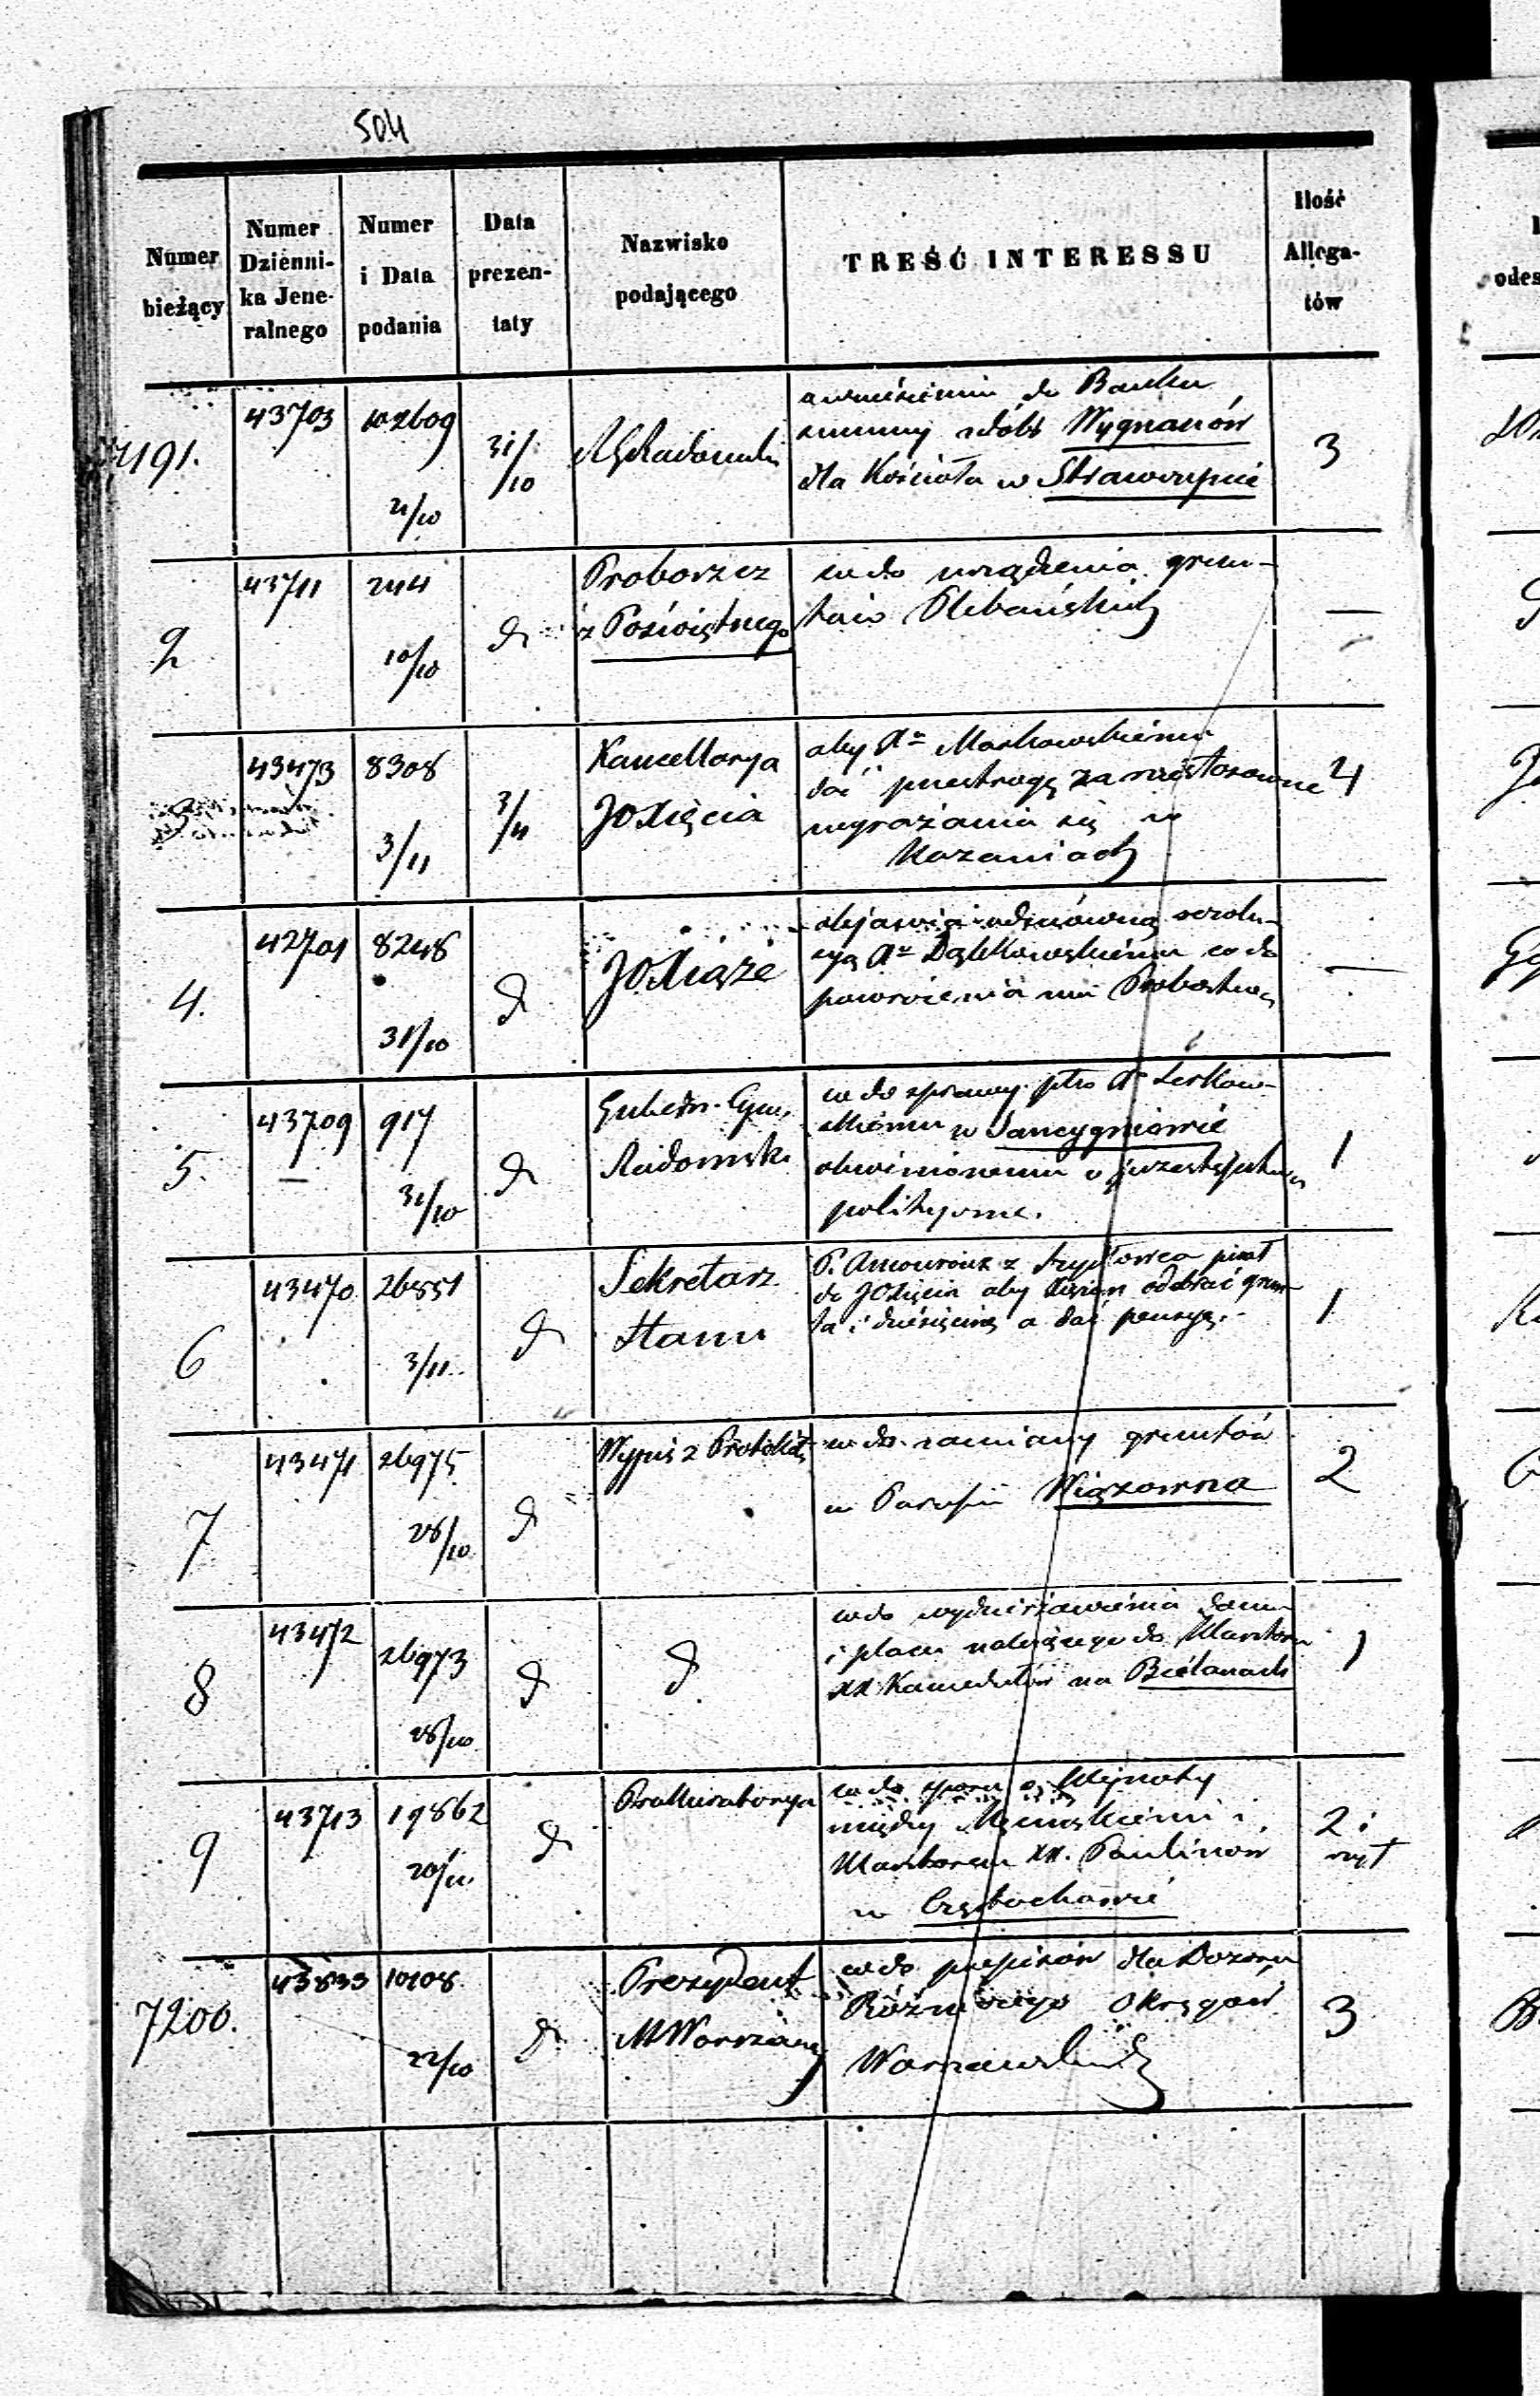 504
Numer bieżący
Numer Dzienni-ka Jene-ralnego
Numer i Data podania
Data prezen-taty
Nazwisko podającego
TREŚĆ INTERESSU
Ilość Allega-tów
7191.
43703
102609
21/10
31/10
RGRadomski
o wniesieniu do Banku
summy z dóbr Wygnanów
dla Kościoła w Strawczynie
3
2
43711
244
10/10
d
Proboszcz
z Poświętnego
co do urządzenia grun-
tów Plebańskich
—
43473
8308
3/11
3/11
Kancellarya
JOXięcia
aby Xu Markowskiemu
dać przestrogę za niestosowne
wyrażania się w
Kazaniach
4
4.
42701
8248
31/10
d
JOXiąże
objawia odmówną rezolu-
cyą Xu Dąbkowskiemu co do
powrócenia mu Probostwa
—
5.
43709
—
917
31/10
d
Gubern. Cyw.
Radomski
co do sprawy ptko Xu Leśkow-
skiemu w Sancygniowie
obwinionemu o przestępstwa
polityczne.
1
6
43470
26851
3/11
d
Sekretarz
Stanu
P. z Szydłowca pisał
do JOXięcia aby Xiężom odebrać grun
ta i dziesięcinę a dać pensyę.
1
7
43471
26975
28/10
d
Wypis z Protokół
co do zamiany gruntów
w Parafii Wiązowna
2
8
43472
26973
28/10
d
d.
co do wydzierżawienia domu
i placu należącego do Klasztoru
XX Kamedułów na Bielanach
1
9
43713
19862
20/11
d
Prokuratorya
co do sporu o Kłejnoty
między Męcińskiemi i
Klasztorem XX. Paulinów
w Częstochowie
2 i
7200.
43833
10108
22/10
d
Prezydent
MWarszawy
co do przepisów dla Dozoru
Bóżniczego Okręgów
Warszawskich
3